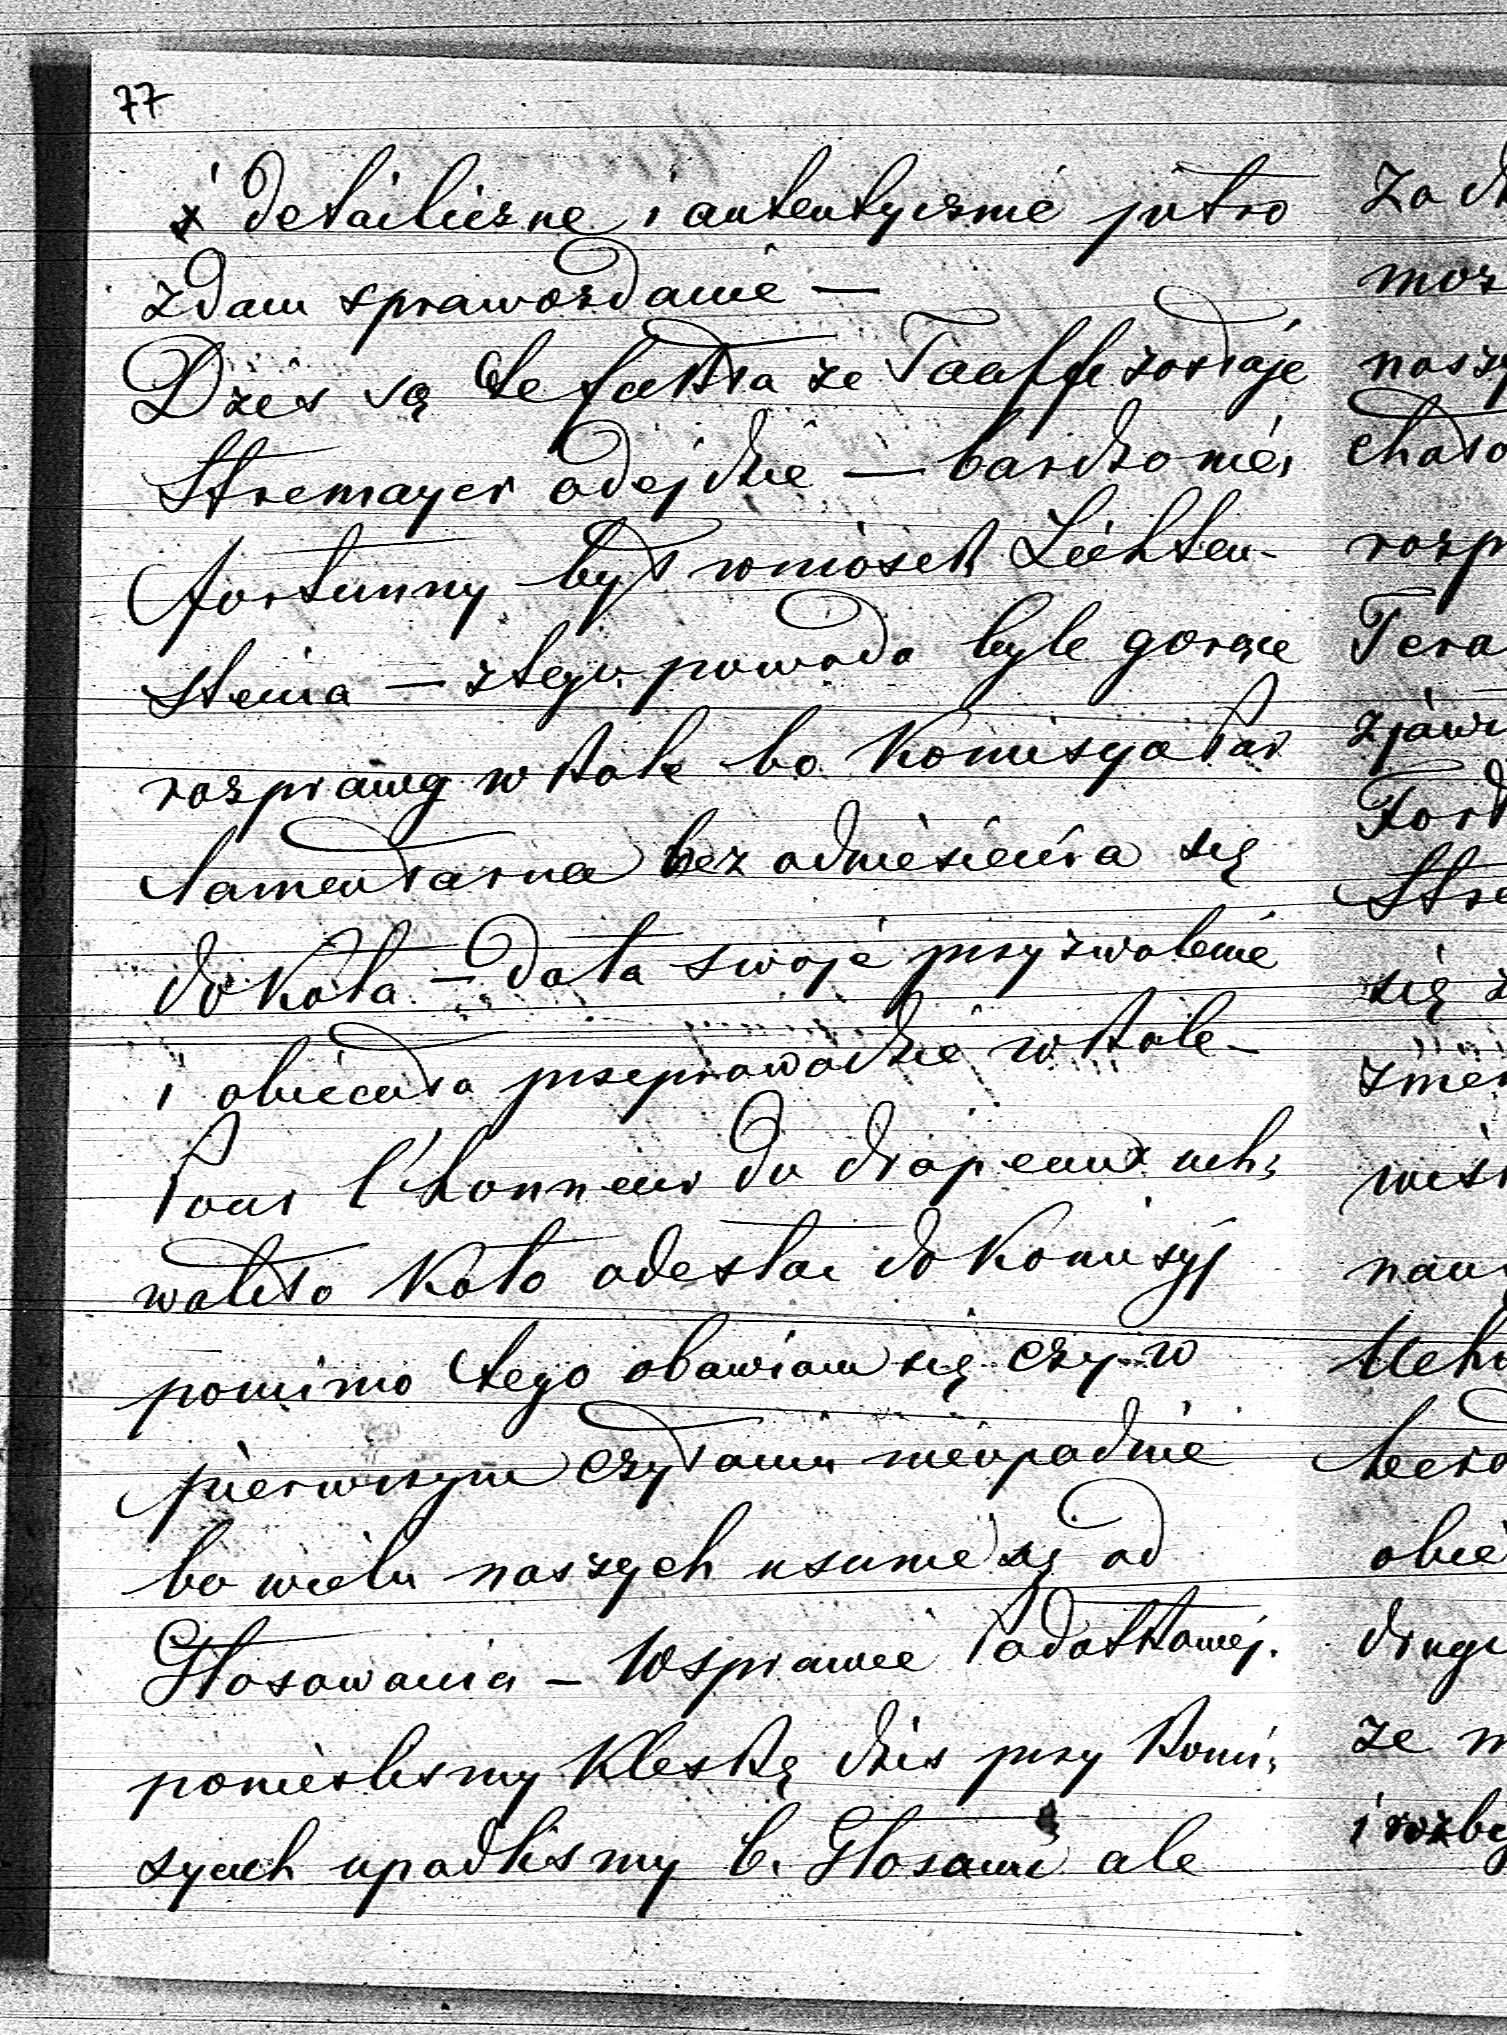 77
i detailiczne i autentycznie jutro
zdam sprawozdanie —
Dzis są te fakta ze Taaffe zostaje
Stremayer odejdzie — bardzo nies
fortunny był wniosek Liechten-
steina — z tego powodu byle gorące
rozprawy w kole bo Komisya Par
lamentarna bez odniesienia się
do Koła — dała swoje przyzwolenie
i obiecała przeprowadzic w kole —
Pour l'honneur du drapeaux uch:
waliło Koło odesłac do Komisyj
pomimo tego obawiam się czy w
pierwszym czytaniu nieupadnie
bo wielu naszych usunie się od
Głosowania — W sprawie Podatkowej.
poniesliśmy Kleskę dzis przy Komi:
syach upadlismy 6. Głosami ale
za
moz
naszy
chato
rozp
Tera
zjawi
Stre
się z
zmie
nau
Uchw
obie
drugi
ze m
i rozby